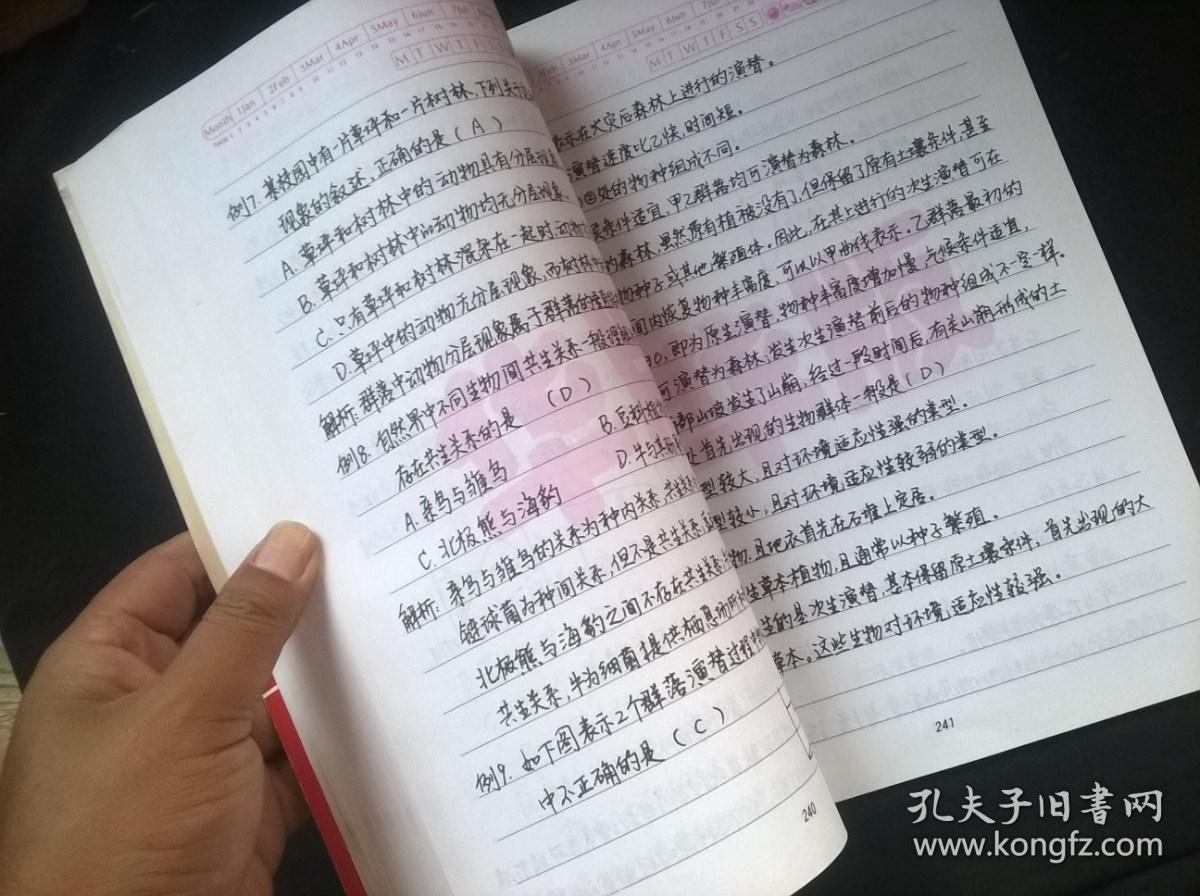 Month 1Jan 2Feb 3Mar 4Apr 5May 6Jun 7Jul
M T W T F S S
例7. 某校园中有一片草坪和一片树林,下列关于
现象的叙述,正确的是(A)
A. 草坪和树林中的动物具有分层现象
B. 草坪和树林中的动物均无分层现象
C. 只有草坪和树林混杂在一起时动物
D. 草坪中的动物无分层现象,而树林中
解析: 群落中动物分层现象属于群落的
例8. 自然界中不同生物间共生关系一般
存在共生关系的是 (D)
A. 亲鸟与雏鸟 B. 豆科植
C. 北极熊与海豹 D. 牛与其
解析: 亲鸟与雏鸟的关系为种内关系,共生关
链球菌为种间关系,但不是共生关系
北极熊与海豹之间不存在共生关系
共生关系,牛为细菌提供栖息场所
例9. 如下图表示2个群落演替过程
中不正确的是(C)
240
2Feb 3Mar 4Apr 5May 6Jun
M T W T F S S
表示在火灾后森林上进行的演替。
演替速度比乙快,时间短。
②处的物种组成不同。
条件适宜,甲乙群落均可演替为森林。
为森林,虽然原有植被没有了,但保留了原有土壤条件,甚至
物种子或其他繁殖体。因此,在其上进行的次生演替可在
间内恢复物种丰富度,可以以甲曲线表示。乙群落最初的
0,即为原生演替,物种丰富度增加慢,气候条件适宜,
可演替为森林,发生次生演替前后的物种组成不一定一样。
部山坡发生了山崩,经过一段时间后,有关山崩形成的土
上首先出现的生物群体一般是(D)
型较大,且对环境适应性强的类型。
型较小,且对环境适应性较弱的类型。
物,且地衣首先在石堆上定居。
生草本植物,且通常以种子繁殖。
生的是次生演替,基本保留原土壤条件,首先出现的大
草本。这些生物对环境适应性较强。
241
孔夫子旧書网
www.kongfz.com